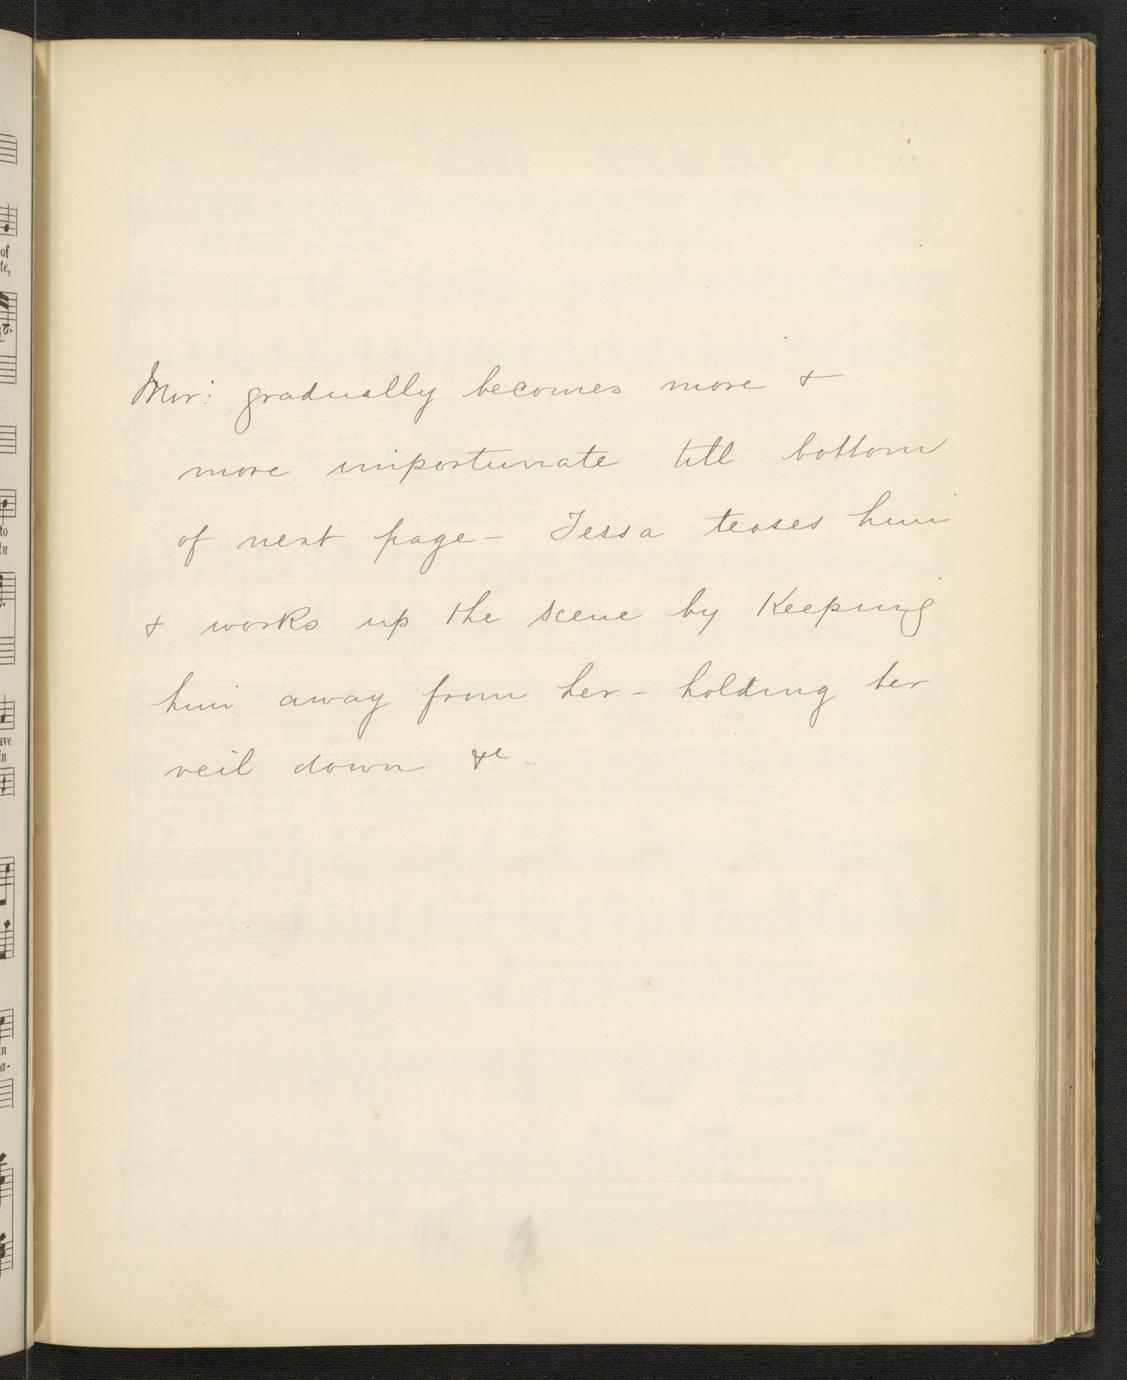 Mor: gradually becomes more &
more importunate till bottom
of next page - Tessa teases him
& works up the scene by Keeping
him away from her - holding her
veil down &c.
of
te,
to
tu
ave
in
n
a-